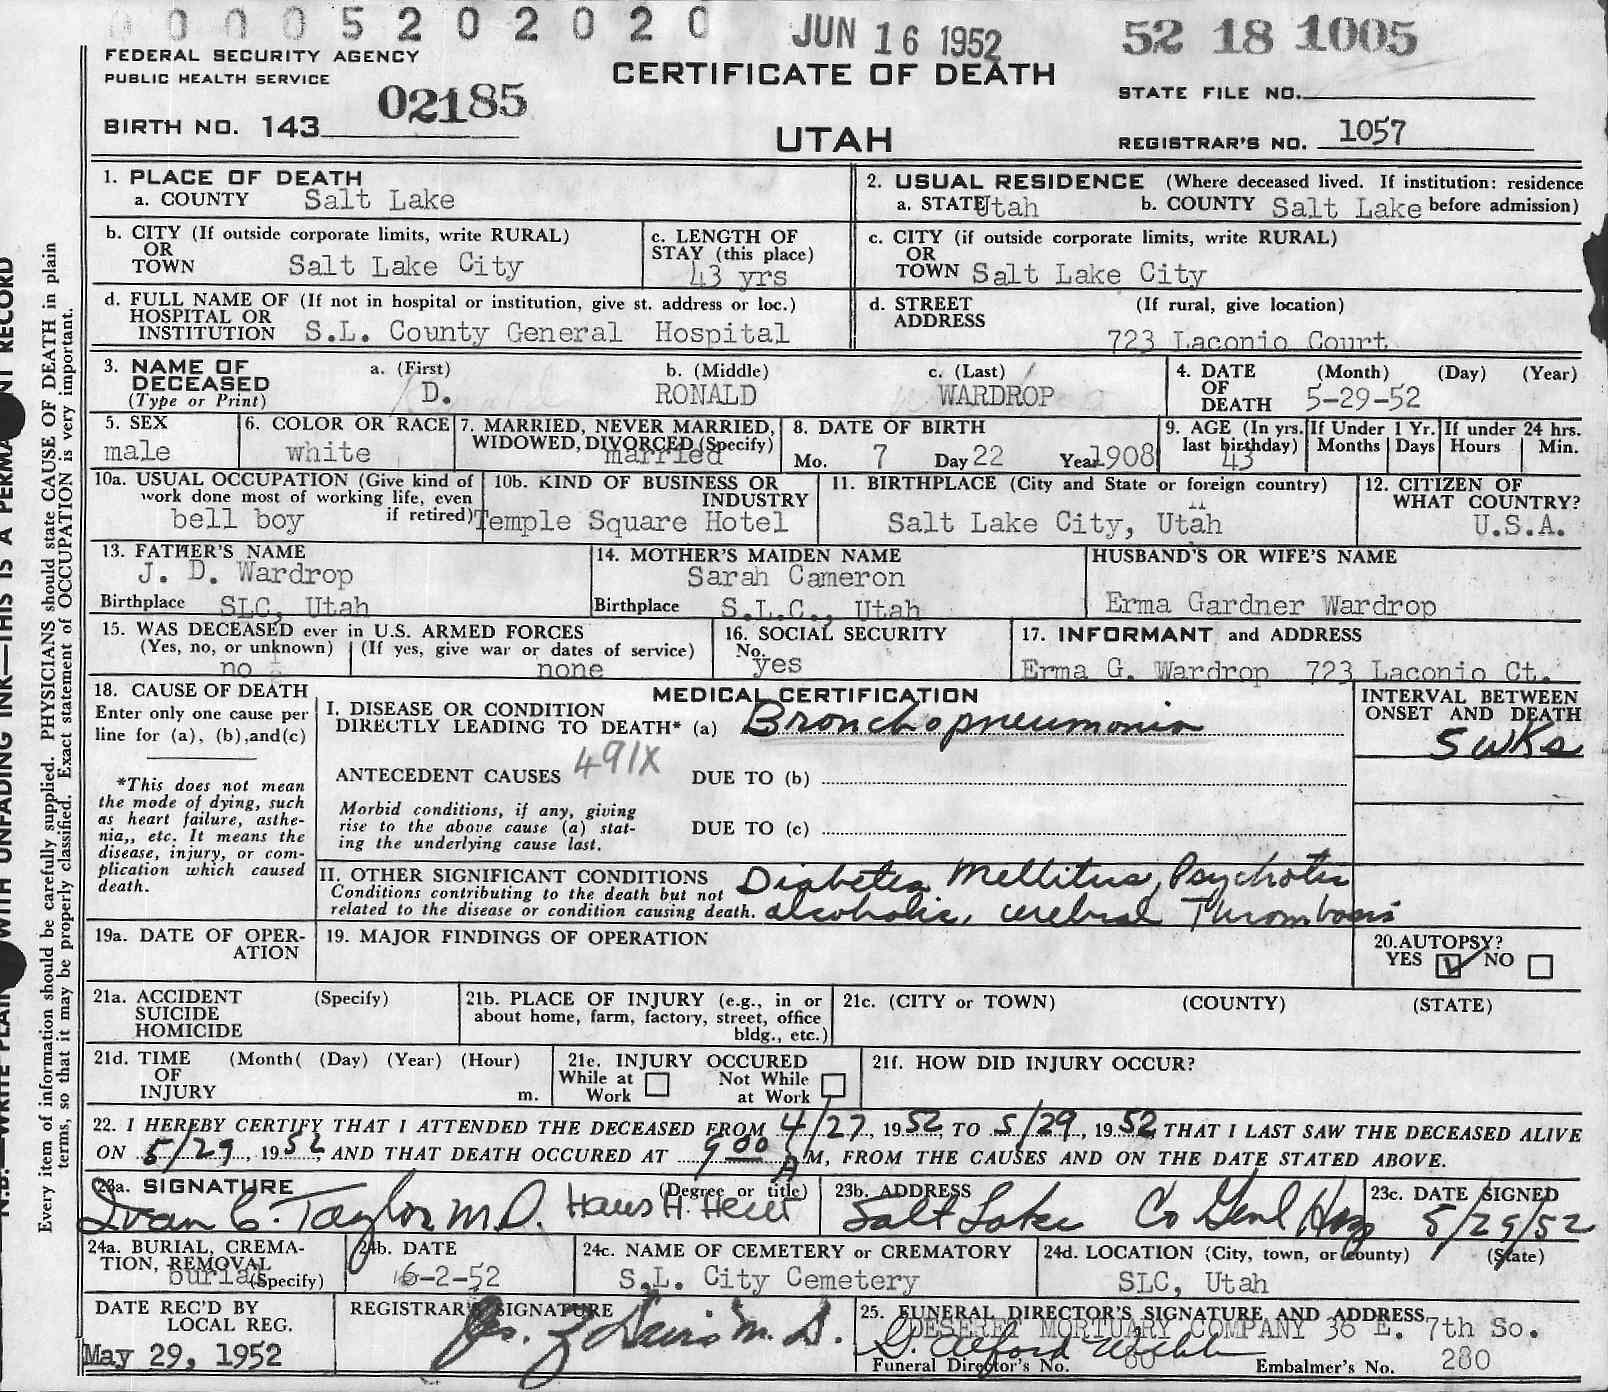 0 0 0 5 2 0 2 0 2 0
JUN 16 1952
52 18 1005
FEDERAL SECURITY AGENCY
PUBLIC HEALTH SERVICE
CERTIFICATE OF DEATH
STATE FILE NO.
BIRTH NO. 143 02185
UTAH
REGISTRAR'S NO. 1057
1. PLACE OF DEATH
a. COUNTY Salt Lake
2. USUAL RESIDENCE (Where deceased lived. If institution: residence before admission)
a. STATE Utah b. COUNTY Salt Lake
b. CITY (If outside corporate limits, write RURAL)
OR
TOWN Salt Lake City
c. LENGTH OF
STAY (this place)
43 yrs
c. CITY (if outside corporate limits, write RURAL)
OR
TOWN Salt Lake City
d. FULL NAME OF (If not in hospital or institution, give st. address or loc.)
HOSPITAL OR
INSTITUTION S.L. County General Hospital
d. STREET (If rural, give location)
ADDRESS
723 Laconio Court
3. NAME OF
DECEASED
(Type or Print)
a. (First)
D.
b. (Middle)
RONALD
c. (Last)
WARDROP
4. DATE (Month) (Day) (Year)
OF
DEATH 5-29-52
5. SEX
male
6. COLOR OR RACE
white
7. MARRIED, NEVER MARRIED,
WIDOWED, DIVORCED (Specify)
married
8. DATE OF BIRTH
Mo. 7 Day 22 Year 1908
9. AGE (In yrs.
last birthday)
43
If Under 1 Yr.
Months Days
If under 24 hrs.
Hours Min.
10a. USUAL OCCUPATION (Give kind of
work done most of working life, even
if retired)
bell boy
10b. KIND OF BUSINESS OR
INDUSTRY
Temple Square Hotel
11. BIRTHPLACE (City and State or foreign country)
Salt Lake City, Utah
12. CITIZEN OF
WHAT COUNTRY?
U.S.A.
13. FATHER'S NAME
J. D. Wardrop
Birthplace SLC, Utah
14. MOTHER'S MAIDEN NAME
Sarah Cameron
Birthplace S.L.C., Utah
HUSBAND'S OR WIFE'S NAME
Erma Gardner Wardrop
15. WAS DECEASED ever in U.S. ARMED FORCES
(Yes, no, or unknown) (If yes, give war or dates of service)
no none
16. SOCIAL SECURITY
No.
yes
17. INFORMANT and ADDRESS
Erma G. Wardrop 723 Laconio Ct.
18. CAUSE OF DEATH
Enter only one cause per
line for (a), (b), and(c)
*This does not mean
the mode of dying, such
as heart failure, asthe-
nia,, etc. It means the
disease, injury, or com-
plication which caused
death.
MEDICAL CERTIFICATION
I. DISEASE OR CONDITION
DIRECTLY LEADING TO DEATH* (a) Bronchopneumonia
INTERVAL BETWEEN
ONSET AND DEATH
5 wks
491X
ANTECEDENT CAUSES DUE TO (b)
Morbid conditions, if any, giving
rise to the above cause (a) stat-
ing the underlying cause last.
DUE TO (c)
II. OTHER SIGNIFICANT CONDITIONS
Conditions contributing to the death but not
related to the disease or condition causing death.
Diabetes Mellitus, Psychotic
alcoholic, cerebral Thrombosis
19a. DATE OF OPER-
ATION
19. MAJOR FINDINGS OF OPERATION
20. AUTOPSY?
YES NO
21a. ACCIDENT (Specify)
SUICIDE
HOMICIDE
21b. PLACE OF INJURY (e.g., in or
about home, farm, factory, street, office
bldg., etc.)
21c. (CITY or TOWN) (COUNTY) (STATE)
21d. TIME (Month( (Day) (Year) (Hour)
OF
INJURY m.
21e. INJURY OCCURED
While at Work
Not While at Work
21f. HOW DID INJURY OCCUR?
22. I HEREBY CERTIFY THAT I ATTENDED THE DECEASED FROM 4/27, 1952, TO 5/29, 1952, THAT I LAST SAW THE DECEASED ALIVE
ON 5/29, 1952, AND THAT DEATH OCCURED AT 9 00 A M, FROM THE CAUSES AND ON THE DATE STATED ABOVE.
23a. SIGNATURE (Degree or title)
Ivan C. Taylor M.D. Hans H.
23b. ADDRESS
Salt Lake Co Genl Hosp
23c. DATE SIGNED
5/29/52
24a. BURIAL, CREMA-
TION, REMOVAL
(Specify)
burial
24b. DATE
6-2-52
24c. NAME OF CEMETERY or CREMATORY
S.L. City Cemetery
24d. LOCATION (City, town, or county) (State)
SLC, Utah
DATE REC'D BY
LOCAL REG.
May 29, 1952
REGISTRAR'S SIGNATURE
M.D.
25. FUNERAL DIRECTOR'S SIGNATURE AND ADDRESS
DESERET MORTUARY COMPANY 36 E. 7th So.
Funeral Director's No. 80 Embalmer's No. 280
N.B.—WRITE PLAINLY WITH UNFADING INK—THIS IS A PERMANENT RECORD
Every item of information should be carefully supplied. PHYSICIANS should state CAUSE OF DEATH in plain
terms, so that it may be properly classified. Exact statement of OCCUPATION is very important.